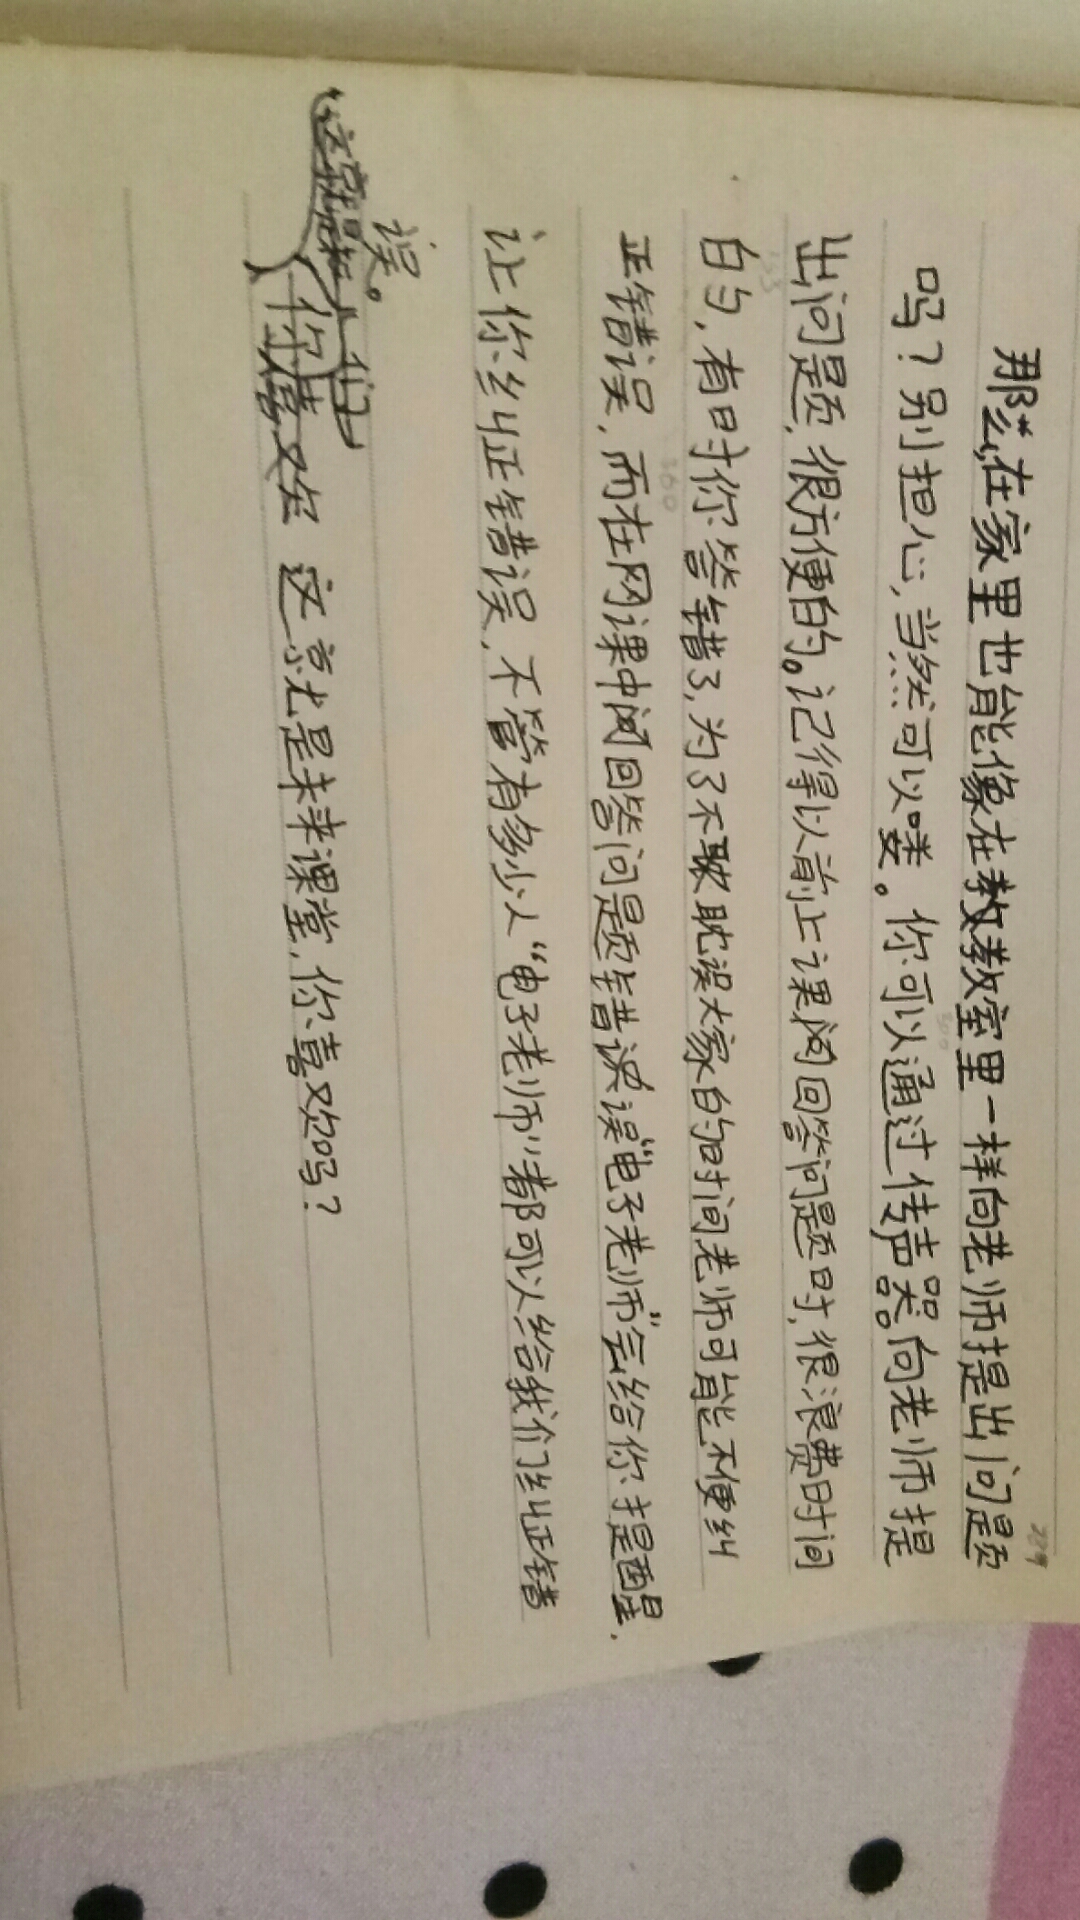 那么,在家里也能像在教教室里一样向老师提出问题
吗？别担心,当然可以喽。你可以通过传声器。向老师提
出问题,很方便的。记得以前上课阅回答问题时,很浪费时间
的,有时你答错了,为了不耽耽误大家的时间老师可能不便纠
正错误,而在网课中阅回答问题错误误“电子老师”会给你提醒,
让你纠正错误,不管有多少人“电子老师”都可以给我们纠正错
误。
你喜欢 这就是未来课堂,你喜欢吗？
229